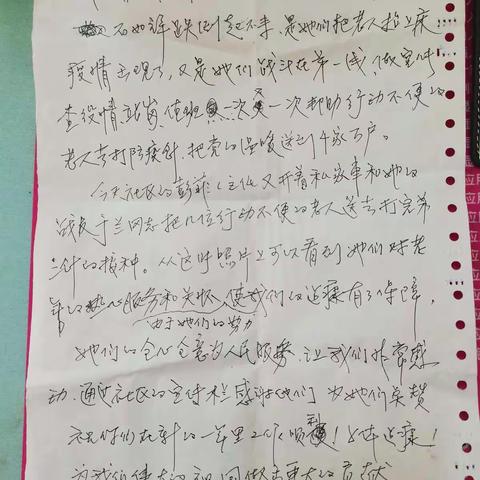 石如详跌倒起不来,是她们把老人抬上床
疫情出现了,又是她们战斗在第一线,做宣传
查疫情站岗、值班 一次又一次帮助行动不便的
老人去打防疫针,把党的温暖送到千家万户。
今天社区的彭菲(主任)又开着私家车和她的
战友于兰同志把几位行动不便的老人送去打完第
二针的接种。从这些照片上可以看到她们对老
年的热心服务和关怀,使我们的健康有了保障,
由于她们的努力
她们的全心全意为人民服务,让我们非常感
动,通过社区的宣传栏感谢她们 为她们点赞
祝你们在新的一年里工作顺利!身体健康!
为我们伟大的祖国做出更大的贡献